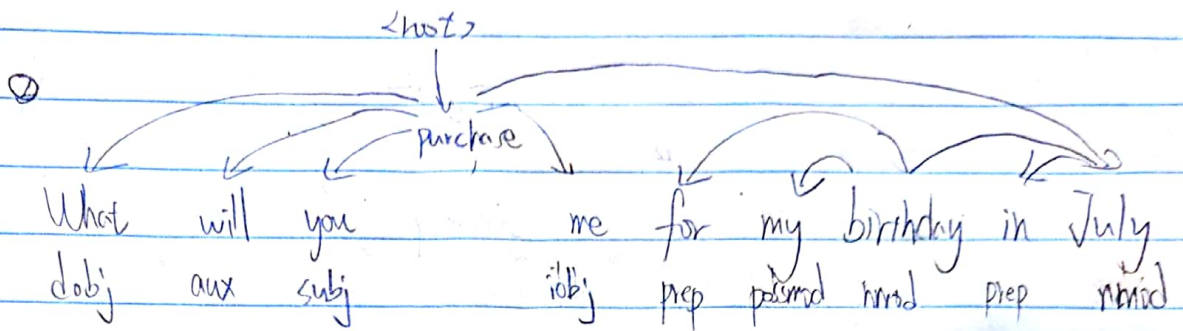 <root>
②
purchase
What will you me for my birthday in July
dobj aux subj iobj prep possmod nmod prep nmod